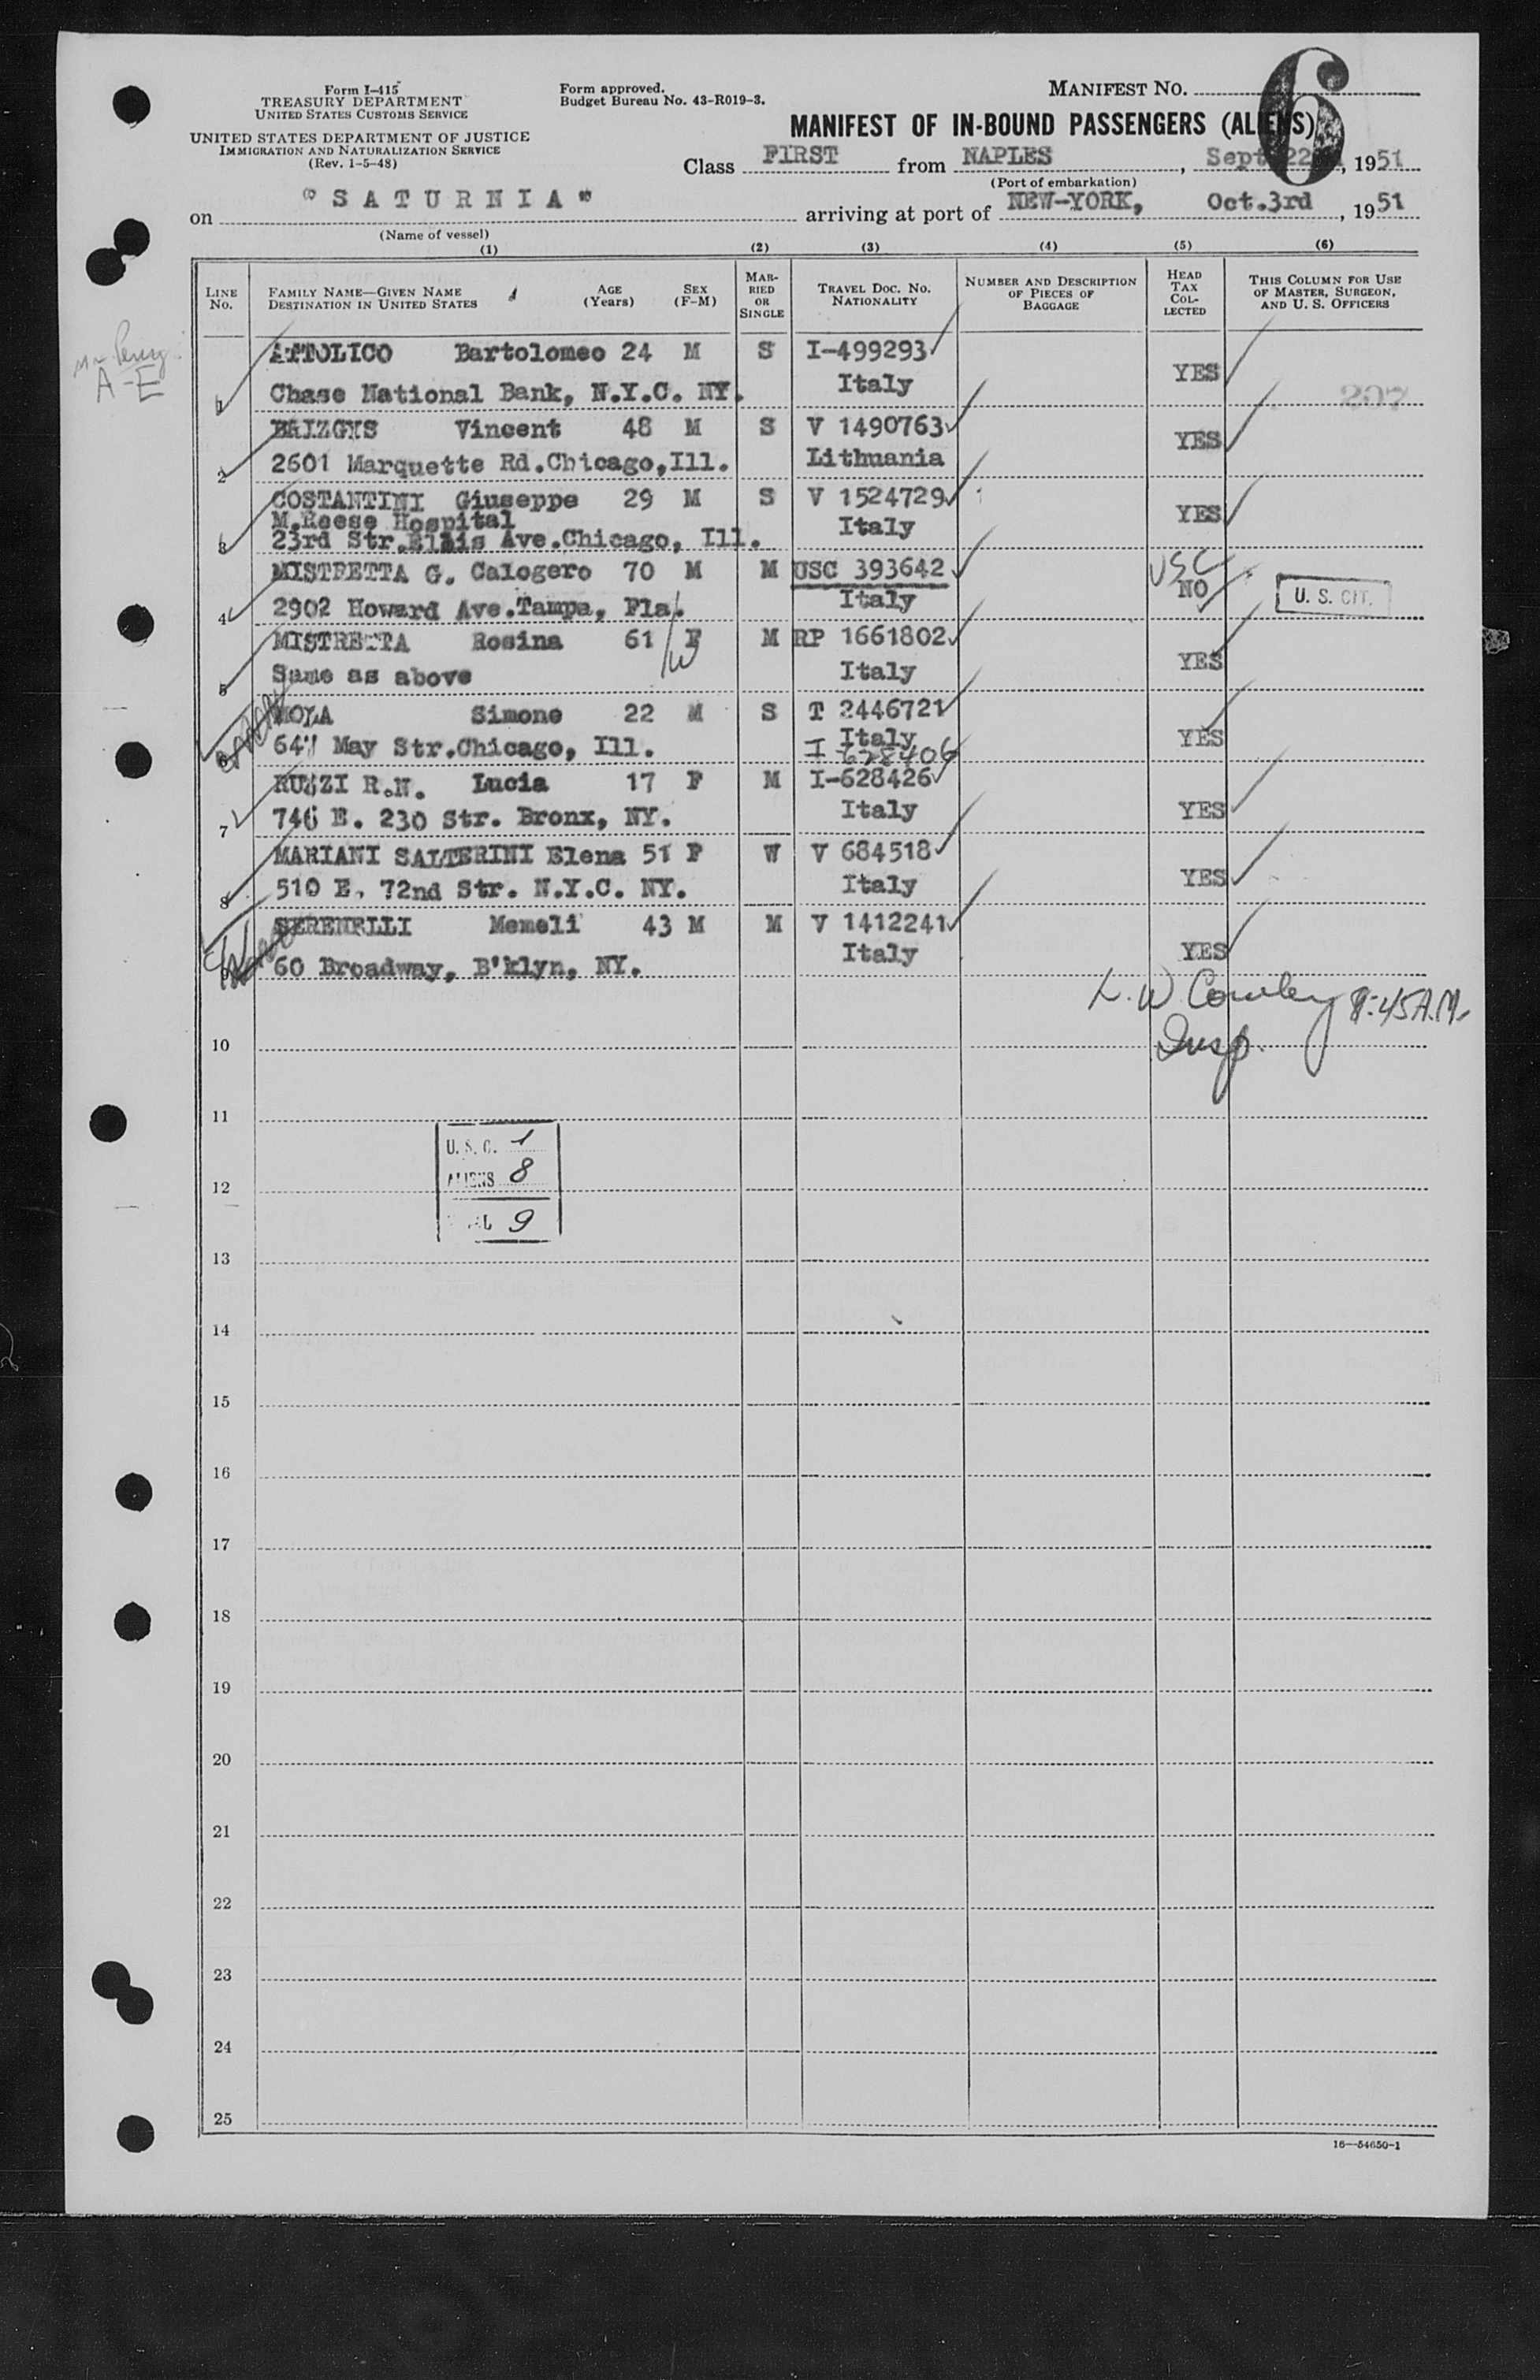 Form I-415
TREASURY DEPARTMENT
UNITED STATES CUSTOMS SERVICE
UNITED STATES DEPARTMENT OF JUSTICE
IMMIGRATION AND NATURALIZATION SERVICE
(Rev. 1-5-48)
Form approved.
Budget Bureau No. 43-R019-3.
MANIFEST NO.
6
MANIFEST OF IN-BOUND PASSENGERS (ALIENS)
Class FIRST from NAPLES, Sept 22, 1951
(Port of embarkation)
on "SATURNIA" arriving at port of NEW-YORK, Oct.3rd, 1951
(Name of vessel)
(1) (2) (3) (4) (5) (6)
LINE No. FAMILY NAME—GIVEN NAME DESTINATION IN UNITED STATES AGE (Years) SEX (F-M) MARRIED OR SINGLE TRAVEL DOC. NO. NATIONALITY NUMBER AND DESCRIPTION OF PIECES OF BAGGAGE HEAD TAX COLLECTED THIS COLUMN FOR USE OF MASTER, SURGEON, AND U. S. OFFICERS
A-E
ATTOLICO Bartolomeo 24 M S I-499293
1 Chase National Bank, N.Y.C. NY. Italy YES 207
BRIZGYS Vincent 48 M S V 1490763
2 2601 Marquette Rd.Chicago,Ill. Lithuania YES
COSTANTINI Giuseppe 29 M S V 1524729
M.Reese Hospital Italy YES
3 23rd Str.Ellis Ave.Chicago, Ill.
MISTRETTA G. Calogero 70 M M USC 393642 USC
4 2902 Howard Ave.Tampa, Fla. Italy NO U. S. CIT.
MISTRETTA Rosina 61 F M RP 1661802
W
5 Same as above Italy YES
MOLA Simone 22 M S T 2446721
6 647 May Str.Chicago, Ill. Italy YES
I 628406
RUZZI R.N. Lucia 17 F M I-628426
7 746 E. 230 Str. Bronx, NY. Italy YES
MARIANI SALTERINI Elena 51 F W V 684518
8 510 E. 72nd Str. N.Y.C. NY. Italy YES
SERENELLI Memeli 43 M M V 1412241
9 60 Broadway, B'klyn, NY. Italy YES
L. W. Cowley 8:45 A.M.
Insp.
10
11
U. S. C. 1
ALIENS 8
12
9
13
14
15
16
17
18
19
20
21
22
23
24
25
16—54650-1